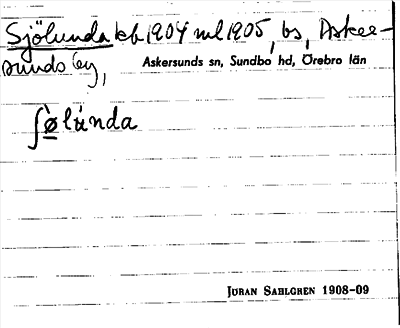 Sjölunda kb 1904 ml 1905, bs, Asker-
sunds by,
Askersunds sn, Sundbo hd, Örebro län
ʃø̀lúnda
JÖRAN SAHLGREN 1908-09